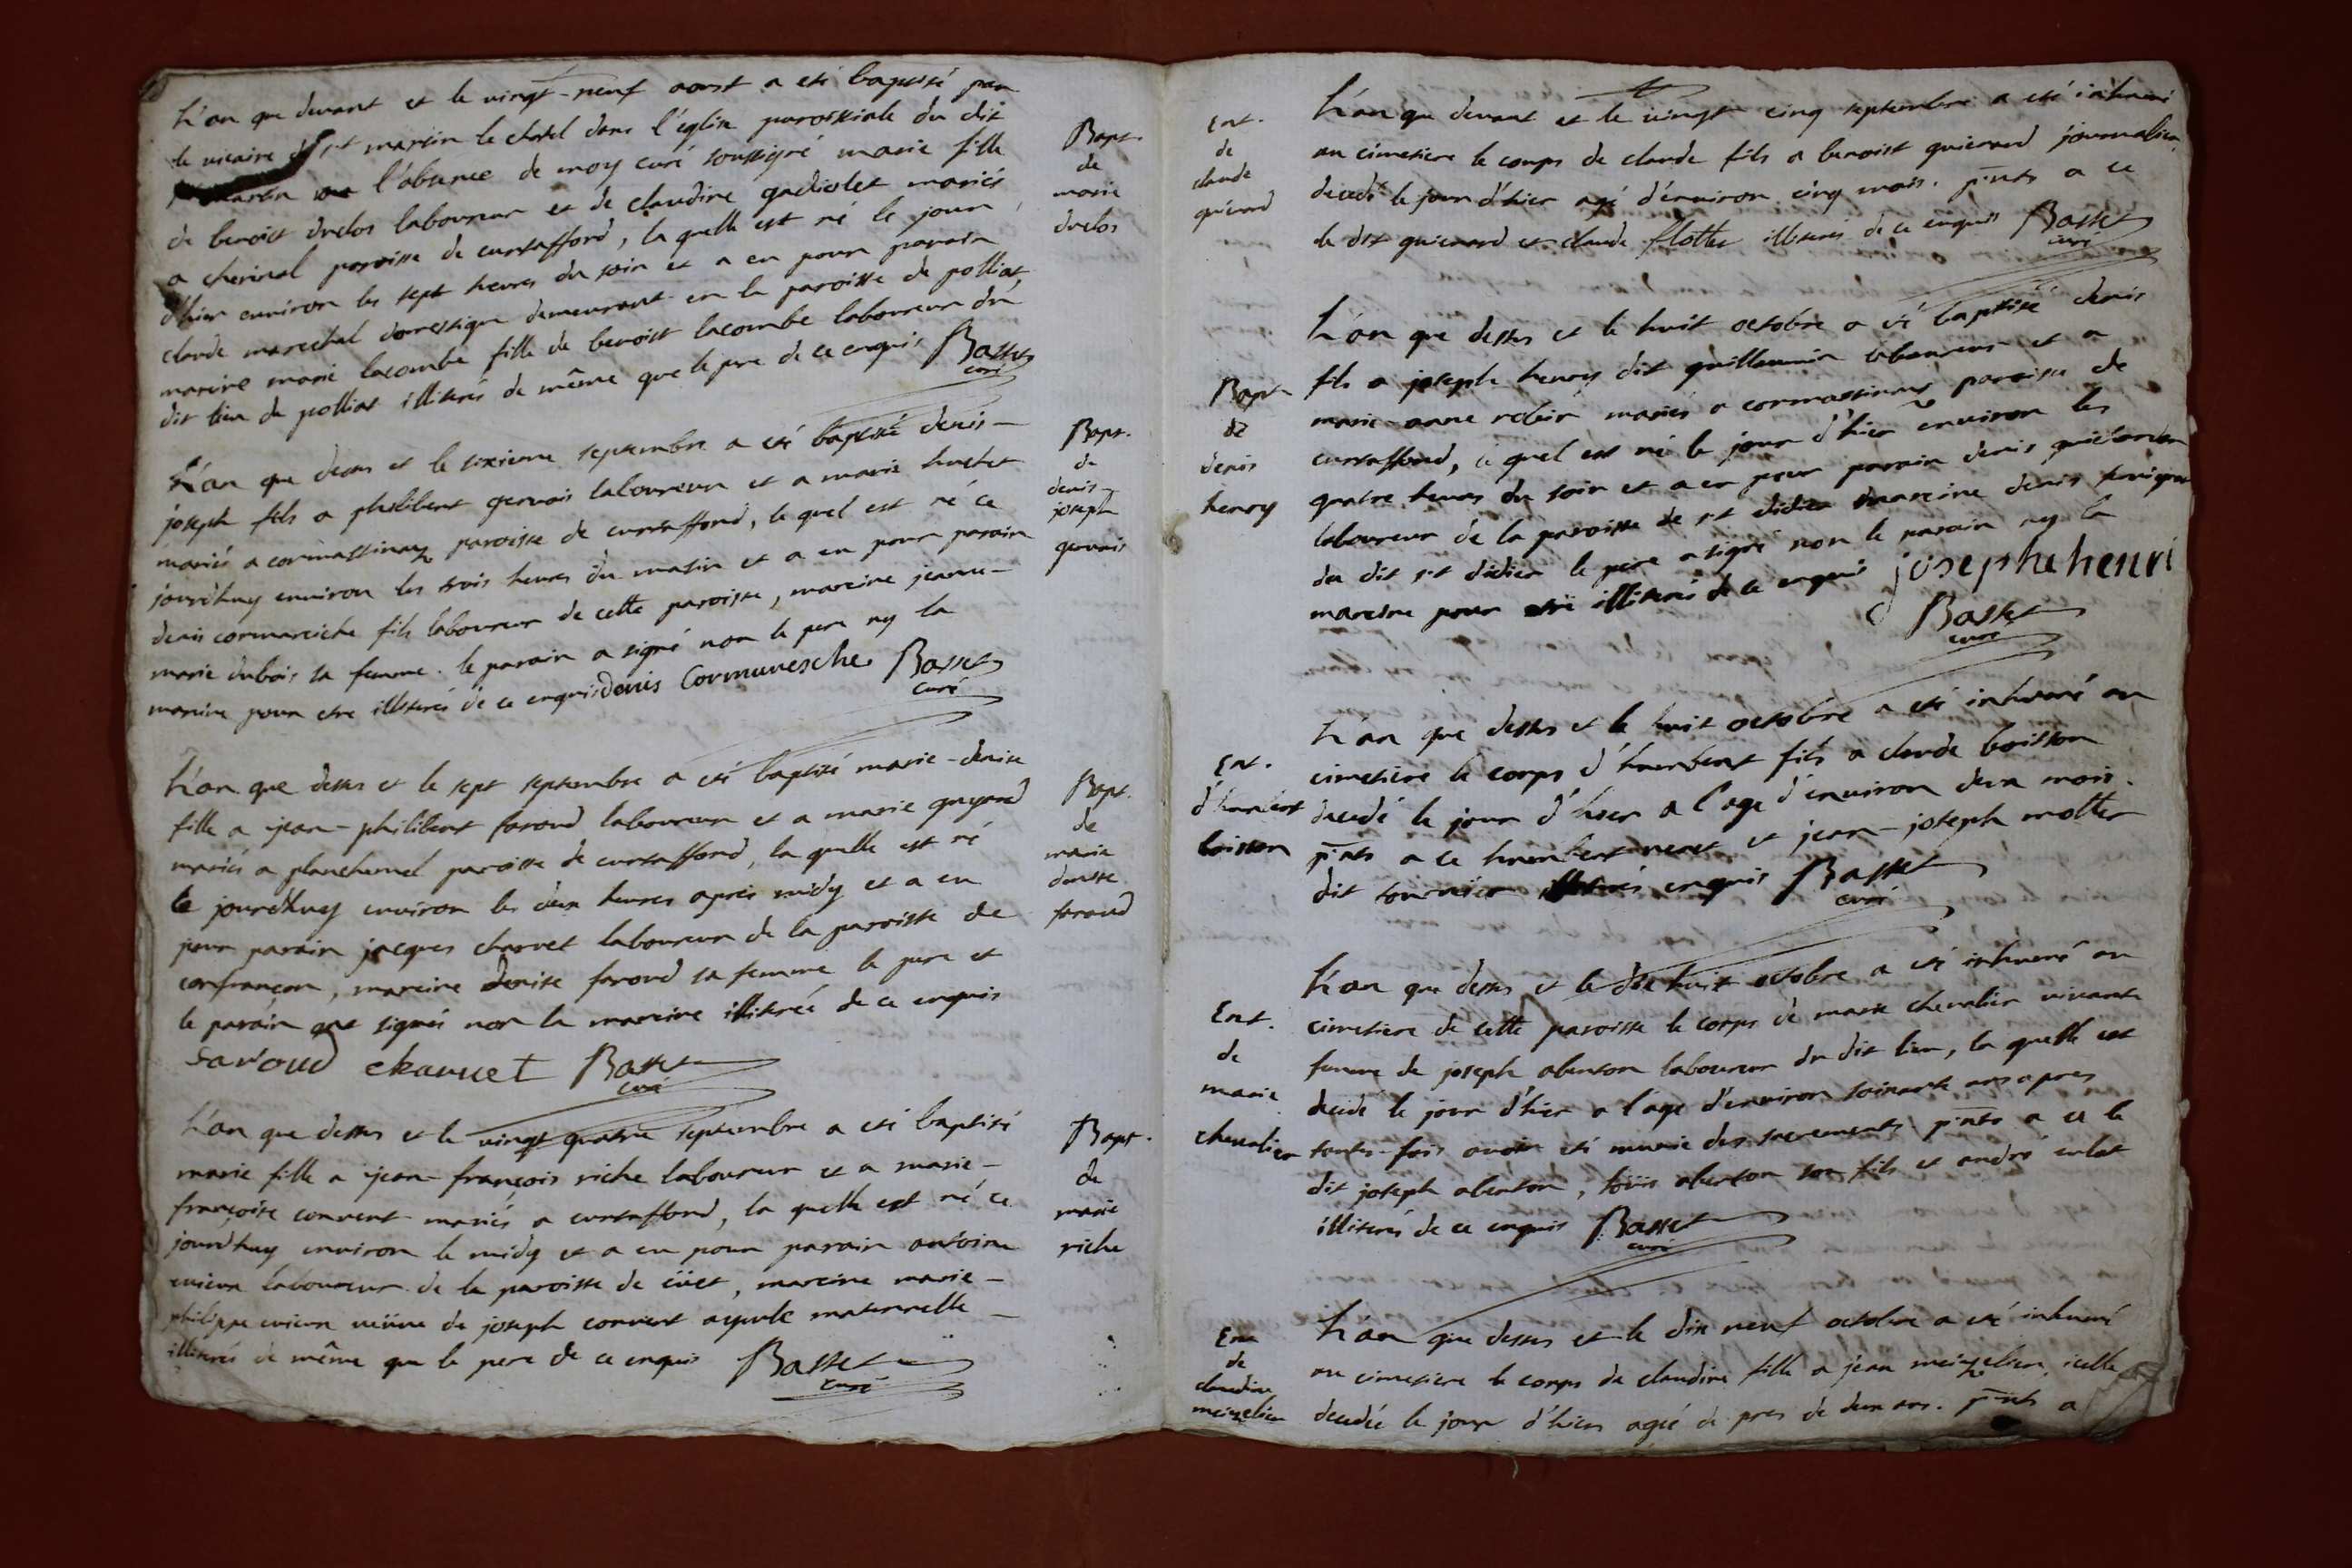 L'an que devant et le vingt-neuf aoust a eté baptisé par
le vicaire de st martin le chatel dans l'église paroissiale du dit
st martin l'absence de moy curé soussigné marie fille
de benoist duclos laboureur et de claudine gadiolet mariés
a cherinal paroisse de curtaffond, la quelle est né le jour
d'hier environ les sept heures du soir et a eu pour parain
claude marechal domestique demeurant en la paroisse de polliat,
mareine marie lacombe fille de benoist lacombe laboureur du
dit lieu de polliat illiterés de même que le pere de ce enquis Basset
curé
Bapt.
de
marie
duclos
L'an que dessus et le sixieme septembre a eté baptisé denis-
joseph fils a philibert gervais laboureur et a marie huchet
mariés a cormassinaz paroisse de curtaffond, le quel est né ce
jourd'huy environ les trois heures du matin et a eu pour parain
denis cormareiche fils laboureur de cette paroisse, mareine jeanne-
marie dubois sa femme. le parain a signé non le pere ny la
mareine pour etre illiterés de ce enquis denis Cormuresche Basset
curé
Bapt.
de
denis-
joseph
gervais
L'an que dessus et le sept septembre a eté baptisé marie-denise
fille a jean-philibert faroud laboureur et a marie guyard
mariés a planchemel paroisse de curtaffond, la quelle est né
ce jourd'huy environ les deux heures après midy et a eu
pour parain jacques charvet laboureur de la paroisse de
confrançon, mareine denise faroud sa femme le pere et
le parain ont signés non la mareine illiterée de ce enquis
Faroud charuet Basset
curé
Bapt.
de
marie
denise
faroud
L'an que dessus et le vingt quatre septembre a eté baptisé
marie fille a jean-françois riche laboureur et a marie-
françoise convert mariés a curtaffond, la quelle est né ce
jourd'huy environ le midy et a eu pour parain antoine
laboureur de la paroisse de cüet, mareine marie-
philippe veüve de joseph convert ayeule maternelle
illiterés de même que le pere de ce enquis Basset
curé
Bapt.
de
marie
riche
Ent.
de
claude
quierard
L'an que devant et le vingt cinq septembre a eté inhumé
au cimetiere le corps de claude fils a benoist quierard journalier
decedé le jour d'hier agé d'environ cinq mois. pnts a ce
le dit quierard et claude flotter illiterés de ce enquis Basset
curé
Bapt
de
denis
henry
L'an que dessus et le huit octobre a eté baptisé denis
fils a joseph henry dit guillaumin laboureur et a
marie-anne mariés a cormassinaz paroisse de
curtaffond, le quel est né le jour d'hier environ les
quatre heures du soir et a eu pour parain denis guichardon
laboureur de la paroisse de st didier mareine denise
du dit st didier le pere a signé non le parain ny la
mareine pour etre illiterés de ce enquis josephe henri
Basset
curé
Ent.
d'humbert
boisson
L'an que dessus et le huit octobre a eté inhumé au
cimetiere le corps d'humbert fils a claude boisson
decedé le jour d'hier a l'age d'environ deux mois.
pnts a ce humbert et jean-joseph mollet
dit tournier illiterés enquis Basset
curé
Ent.
de
marie
chevalier
L'an que dessus et le dix huit octobre a eté inhumé au
cimetiere de cette paroisse le corps de marie chevalier vivante
femme de joseph aberton laboureur du dit lieu, la quelle est
decede le jour d'hier a l'age d'environ soixante ans apres
toutes-fois avoir eté munie des sacrements pnts a ce le
dit joseph aberton, loüis aberton son fils et andré
illiterés de ce enquis Basset
curé
Ent
de
claudine
meizelier
L'an que dessus et le dix neuf octobre a eté inhumé
au cimetiere le corps de claudine fille a jean meizelier, icelle
decedée le jour d'hier agée de pres de deux ans. pnts a